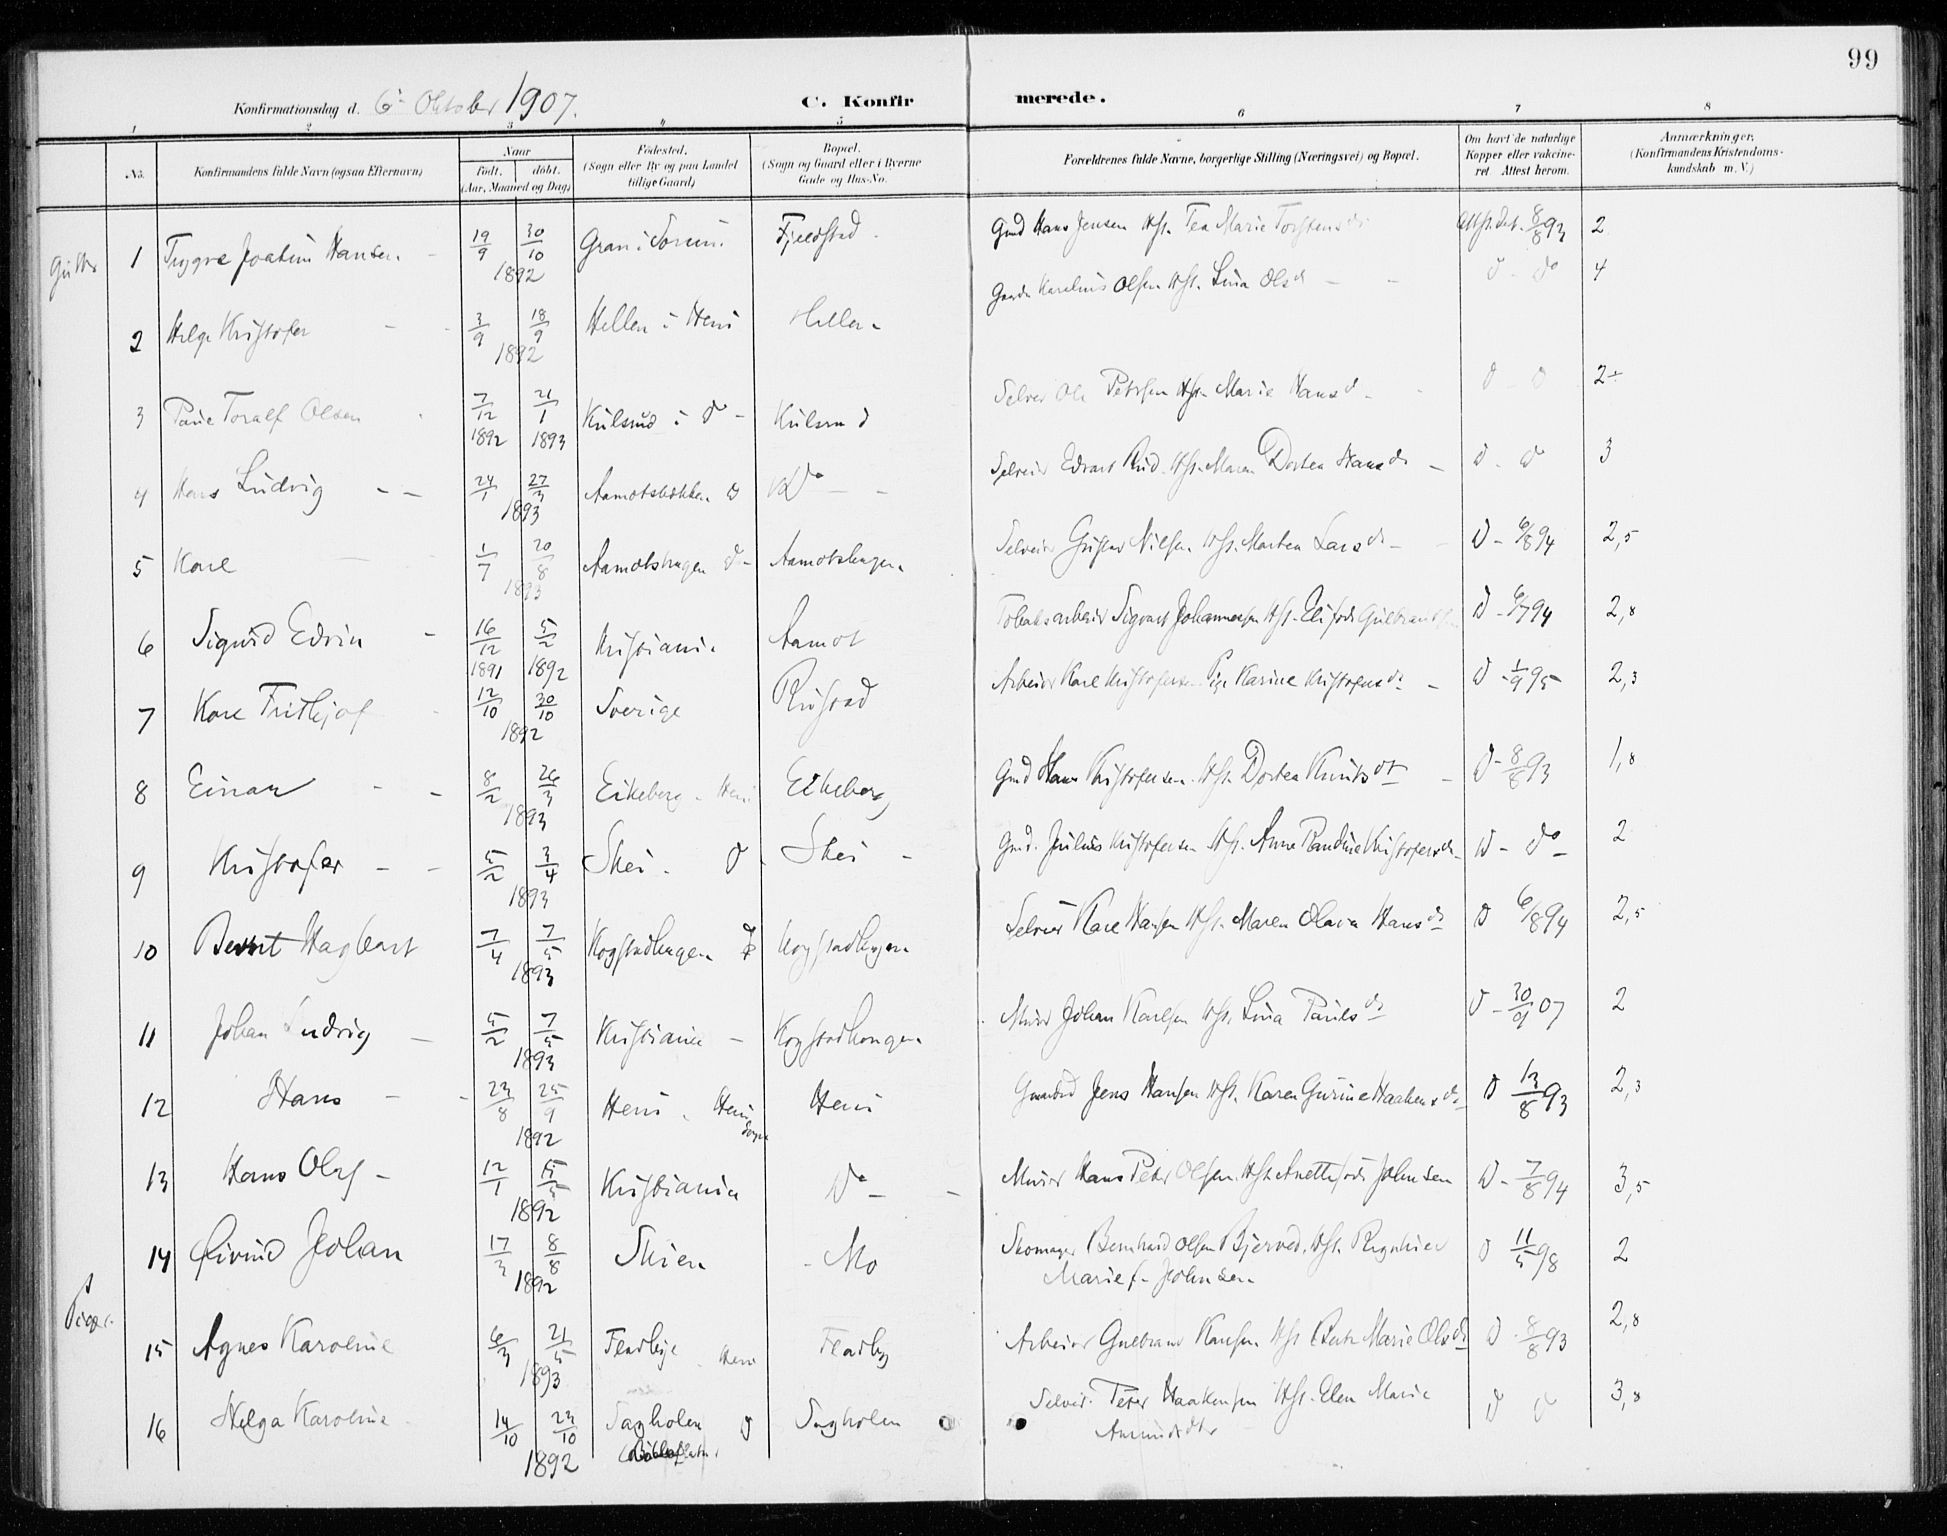 99
Konfirmationsdag d. 6. Oktober 1907. C. Konfirmerede.
1 2 3 4 5 6 7 8
No. Konfirmandens fulde Navn (ogsaa Efternavn) Naar født. døbt. (Aar, Maaned og Dag) Fødested. (Sogn eller By og paa Landet tillige Gaard) Bopæl. (Sogn og Gaard eller i Byerne Gade og Hus-No. Forældrenes fulde Navne, borgerlige Stilling (Næringsvei) og Bopæl. Om havt de naturlige Kopper eller vaccineret Attest herom. Anmærkninger. (Konfirmandens Kristendomskundskab m. V.)
Gutter 1 Trygve Joakim Hansen 19/9 30/10 1892 Gran i Fjeldstad Gmd Hans Jensen Hst. Tea Marie Torstensdr 8/8 93 2
2 Helge Kristofer 3/9 18/9 1892 Hellen i Hen Hellen Karelius Olsen Hst. Lina Olsd do 4
3 Toralf Olsen 7/12 1892 21/1 1893 Kulsrud i d Kulsrud Selveier Ole Petersen Hst. Marie Hansd d d 2÷
4 Hans Ludvig 24/1 27/3 1893 Aamotsbakken d do Selveier Edvart Rud Hst. Maren Dortea Hansdr d d 3
5 Karl 1/7 20/8 1893 Aamotshagen d Aamotshagen Selveier Gustav Nilsen Hst. Martea Larsdr d 6/8 94 2,5
6 Sigurd Edvin 16/12 1891 5/2 1892 Kristiania Aamot Tobaksarbeider Sigvart Johannesen Hst. Eli født d 94 2,8
7 Karl Frithjof 12/10 30/10 1892 Sverige Rustad Arbeider Karl Kristofersen Pige Karine Kristofersdr d 1/9 95 2,3
8 Einar 8/2 26/3 1893 Eikeberg Hen Eikeberg Gmd Hans Kristofersen Hst. Dortea Knutsdt d 8/8 93 1,8
9 Kristofer 5/2 3/4 1893 Skei d Skei Gmd. Julius Kristofersen Hst. Anne Randine Kristofersdr d do 2
10 Bernt Hagbart 7/4 7/5 1893 Kogstadhagen d Kogstadhagen Selveier Karl Hansen Hst. Maren Olava Hansdr d 6/8 94 2,5
11 Johan Ludvig 5/2 7/5 1893 Kristiania Kogstadhaugen Murer Johan Karlsen Hst. Lina Paulsdr d 30/9 07 2
12 Hans 23/8 25/9 1892 Hen Hens Sogn Hen Jens Hansen Hst. Karen Gurine Haakensdr d 13/8 93 2,3
13 Hans Olaf 12/1 15/5 1892 Kristiania do Murer Hans Peter Olsen Hst. Anette født Johnsen d 7/8 94 3,5
14 Øivind Johan 17/3 8/8 1892 Skien Mo Skomager Bernhard Olsen Bjerved Hst. Ragnhild
Marie f. Johnsen d 11/5 98 2
Piger 15 Agnes Karoline 6/3 21/5 1893 Fladbye Hen Fladby Arbeider Gulbrand Hansen Hst. Berte Marie Olsdr d 8/8 93 2,8
16 Helga Karoline 14/10 23/10 1892 Sagholen d Sagholen Selveier Peter Haakensen Hst. Elen Marie
Amundsdtr d d 3,8